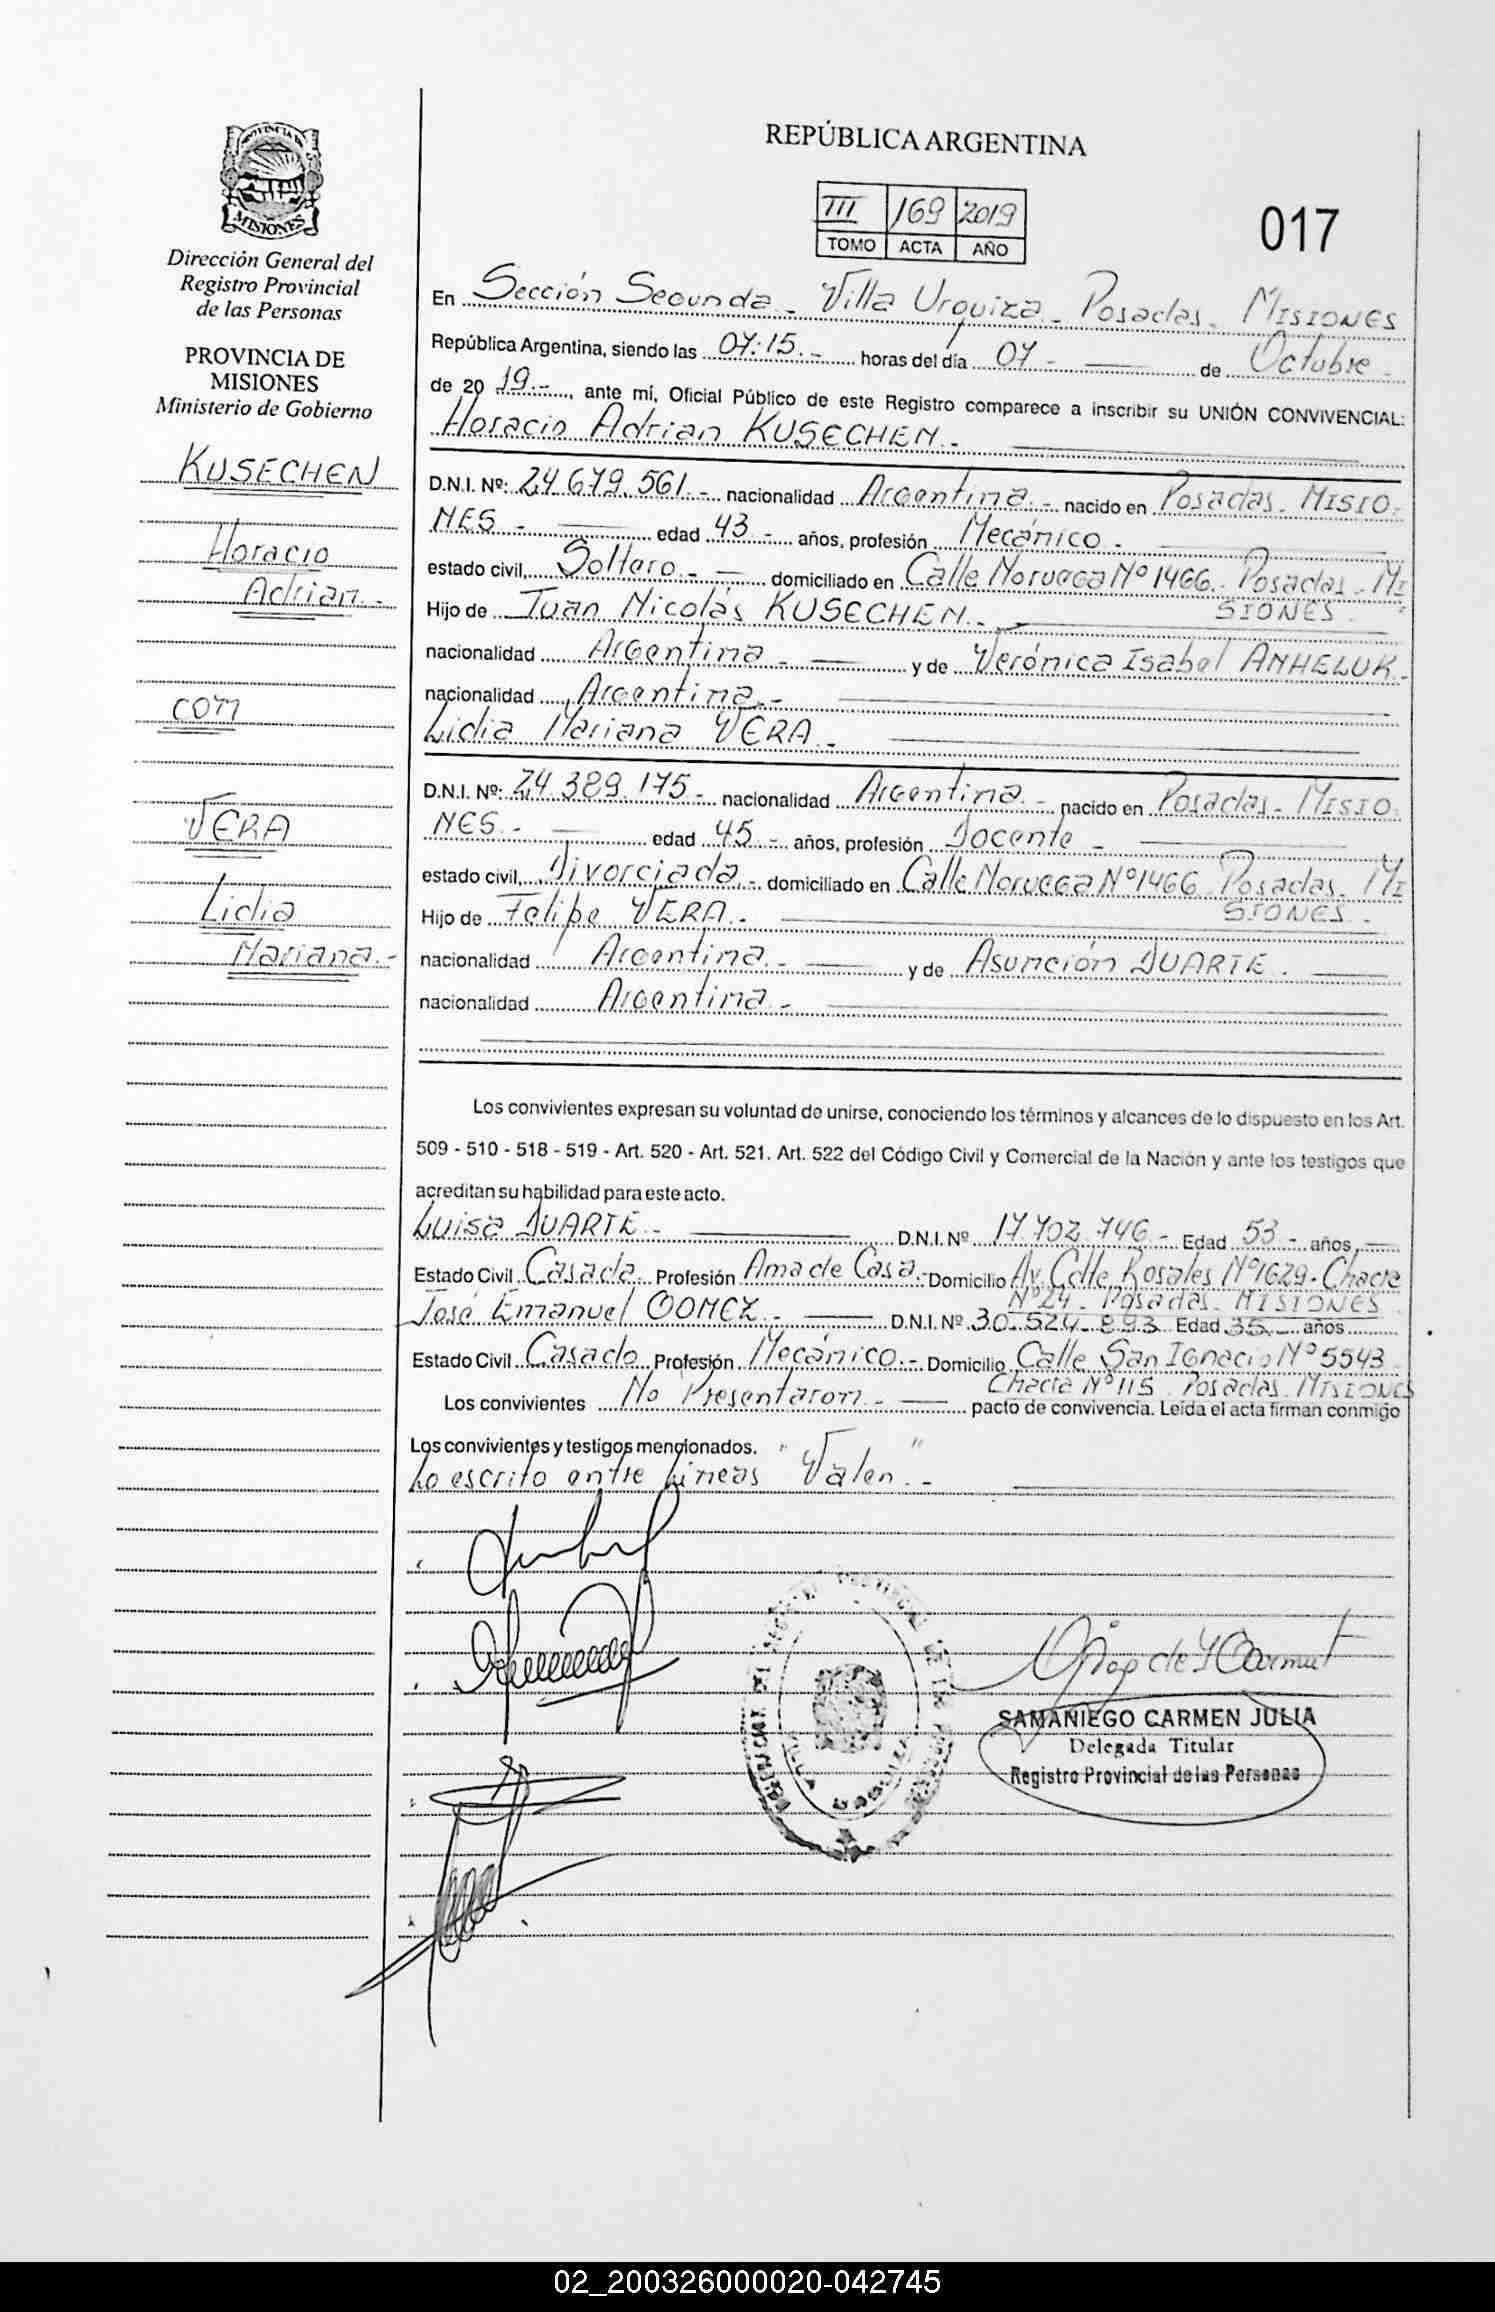 REPÚBLICA ARGENTINA
III 169 2019
TOMO ACTA AÑO
017
MISIONES
Dirección General del
Registro Provincial
de las Personas
PROVINCIA DE
MISIONES
Ministerio de Gobierno
KUSECHEN
Horacio
Adrian.-
con
VERA
Lidia
Mariana.-
En Sección Segunda - Villa Urquiza - Posadas - MISIONES
República Argentina, siendo las 07:15.- horas del día 07 - de Octubre -
de 20 19.-, ante mí, Oficial Público de este Registro comparece a inscribir su UNIÓN CONVIVENCIAL:
Horacio Adrian KUSECHEN.-
D.N.I. Nº: 24.679.561.- nacionalidad Argentina.- nacido en Posadas - MISIO
NES.- edad 43.- años, profesión Mecánico.-
estado civil, Soltero.- domiciliado en Calle Noruega Nº 1466. Posadas - MI
SIONES.
Hijo de Juan Nicolás KUSECHEN.-
nacionalidad Argentina.- y de Verónica Isabel ANHELUK.-
nacionalidad Argentina.-
Lidia Mariana VERA.-
D.N.I. Nº: 24.389.175.- nacionalidad Argentina.- nacido en Posadas - MISIO
NES.- edad 45.- años, profesión Docente -
estado civil, Divorciada.- domiciliado en Calle Noruega Nº 1466 Posadas - MI
SIONES.-
Hijo de Felipe VERA.-
nacionalidad Argentina.- y de Asunción DUARTE.
nacionalidad Argentina.-
Los convivientes expresan su voluntad de unirse, conociendo los términos y alcances de lo dispuesto en los Art.
509 - 510 - 518 - 519 - Art. 520 - Art. 521. Art. 522 del Código Civil y Comercial de la Nación y ante los testigos que
acreditan su habilidad para este acto.
Luisa DUARTE.- D.N.I. Nº 17.702.746.- Edad 53.- años,
Estado Civil Casada. Profesión Ama de Casa.- Domicilio Av. Calle Rosales Nº 1629 - Chacra
Nº 24 - Posadas - MISIONES
José Emanuel GOMEZ.- D.N.I. Nº 30.524.893 Edad 35 años
Estado Civil Casado Profesión Mecánico.- Domicilio Calle San Ignacio Nº 5543
Chacra Nº 115 Posadas MISIONES
Los convivientes No Presentaron.- pacto de convivencia. Leída el acta firman conmigo
Los convivientes y testigos mencionados.
Lo escrito entre Líneas "Valen".-
SAMANIEGO CARMEN JULIA
Delegada Titular
Registro Provincial de las Personas
02_200326000020-042745